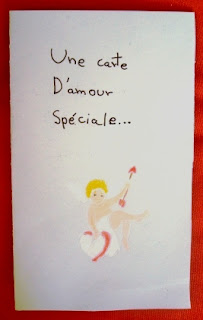 Une carte
D'amour
Spéciale...